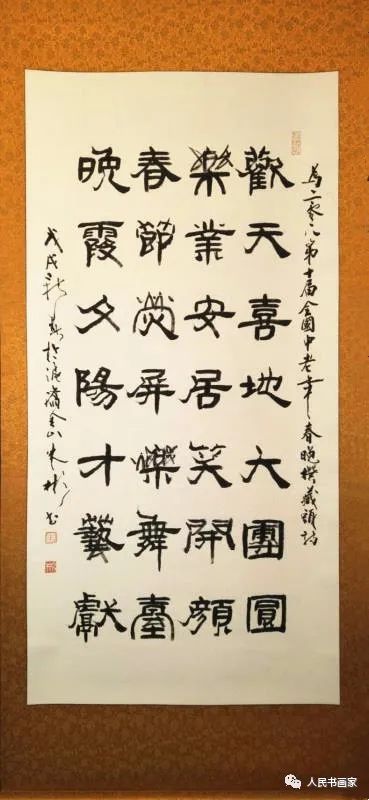 為二零一八第十届全國中老年春晚撰藏頭詩
歡天喜地大團圓
樂業安居笑開顔
春節熒屏爍舞臺
晚霞夕陽才藝獻
戊戌新春於金山書
人民书画家